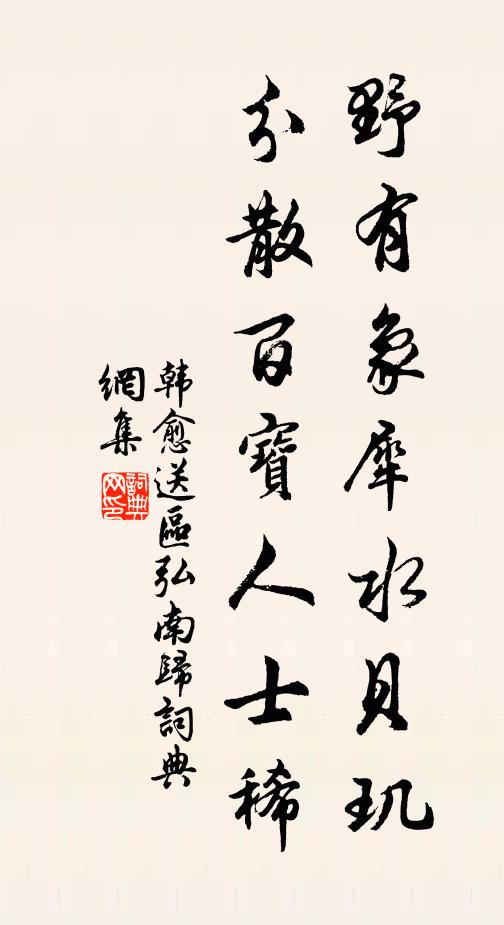 野有象犀水貝玑
分散百寶人士稀
韩愈送區弘南歸詞典
網集
詞典
网印